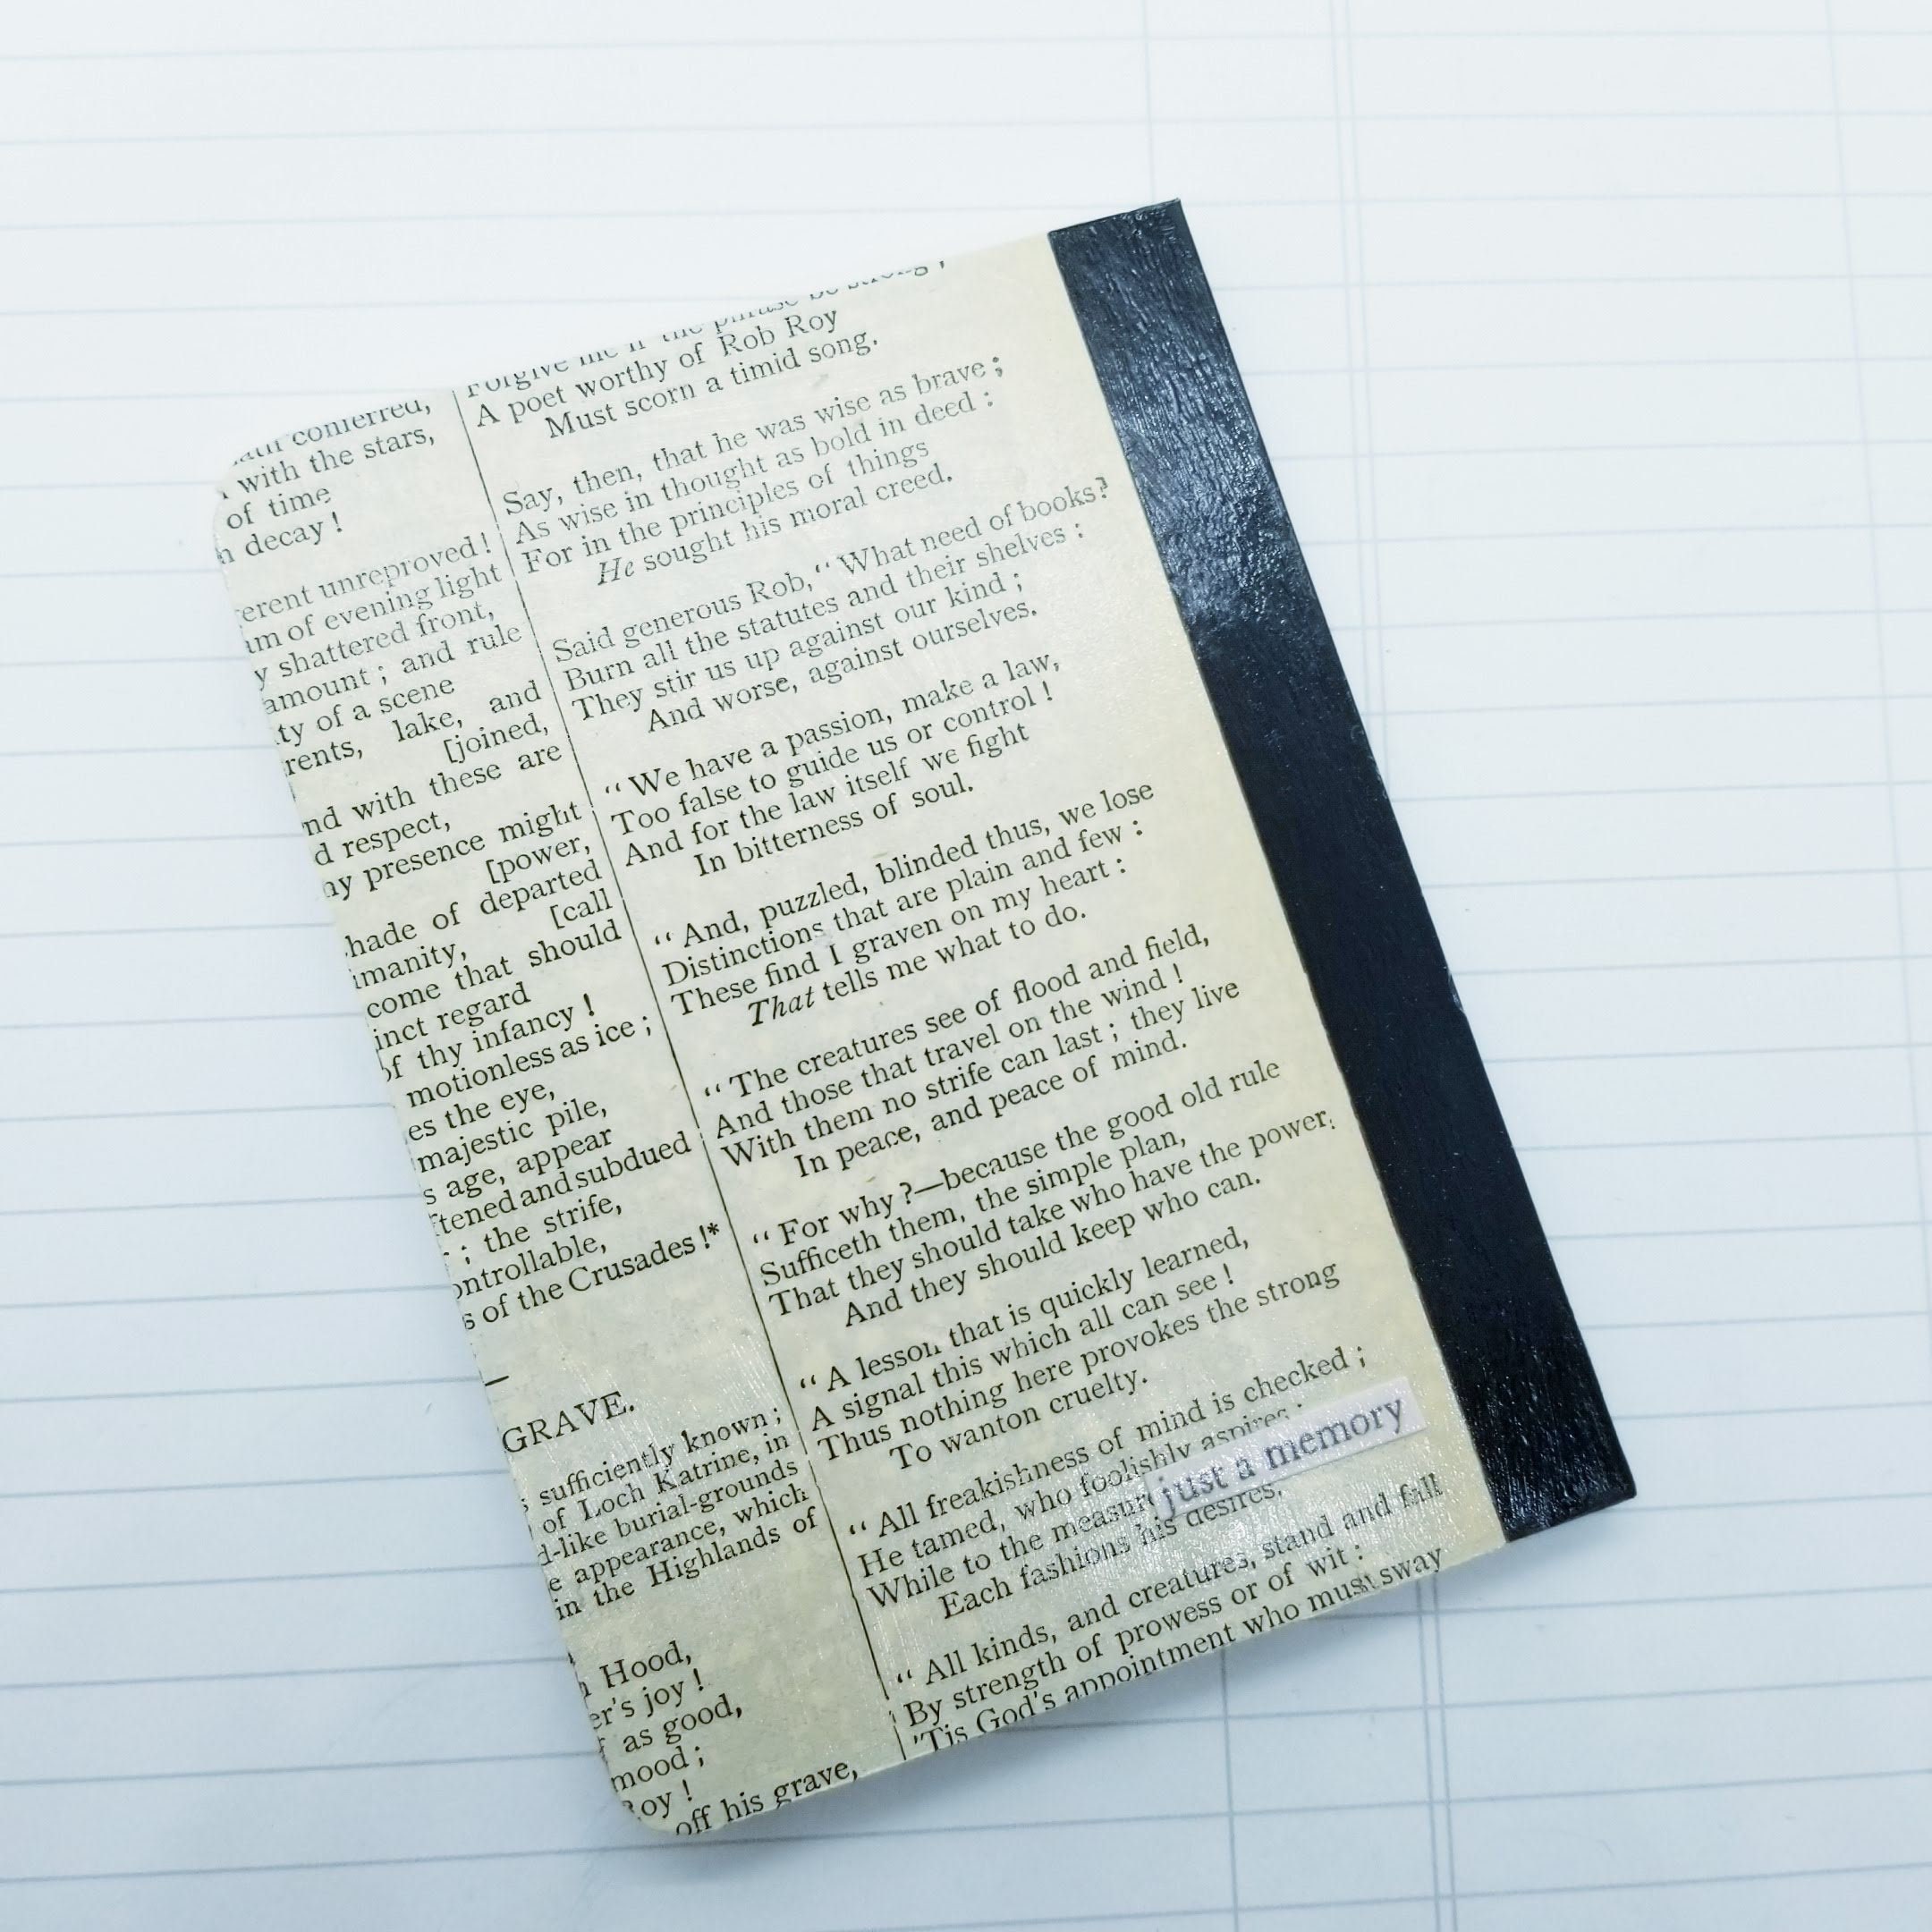 conferred,
with the stars,
of time
decay !
erent unreproved !
am of evening light
y shattered front,
amount ; and rule
ty of a scene
rents, lake, and
[joined,
nd with these are
d respect,
ny presence might
[power,
hade of departed
manity,
[call
come that should
inct regard
of thy infancy !
motionless as ice ;
es the eye,
majestic pile,
s age, appear
ftened and subdued
; the strife,
ontrollable,
s of the Crusades !*
—
GRAVE.
sufficiently known ;
of Loch Katrine, in
d-like burial-grounds
e appearance, which
in the Highlands of
Hood,
er's joy !
as good,
mood ;
Roy !
off his grave,
Forgive me if the phrase be strong ;
A poet worthy of Rob Roy
Must scorn a timid song.
Say, then, that he was wise as brave ;
As wise in thought as bold in deed :
For in the principles of things
He sought his moral creed.
Said generous Rob, “ What need of books?
Burn all the statutes and their shelves :
They stir us up against our kind ;
And worse, against ourselves.
“ We have a passion, make a law,
Too false to guide us or control !
And for the law itself we fight
In bitterness of soul.
“ And, puzzled, blinded thus, we lose
Distinctions that are plain and few :
These find I graven on my heart :
That tells me what to do.
“ The creatures see of flood and field,
And those that travel on the wind !
With them no strife can last ; they live
In peace, and peace of mind.
“ For why ?—because the good old rule
Sufficeth them, the simple plan,
That they should take who have the power,
And they should keep who can.
“ A lesson that is quickly learned,
A signal this which all can see !
Thus nothing here provokes the strong
To wanton cruelty.
“ All freakishness of mind is checked ;
He tamed, who foolishly aspires ;
While to the measur
just a memory
Each fashions his desires.
“ All kinds, and creatures, stand and fall
By strength of prowess or of wit :
'Tis God's appointment who must sway